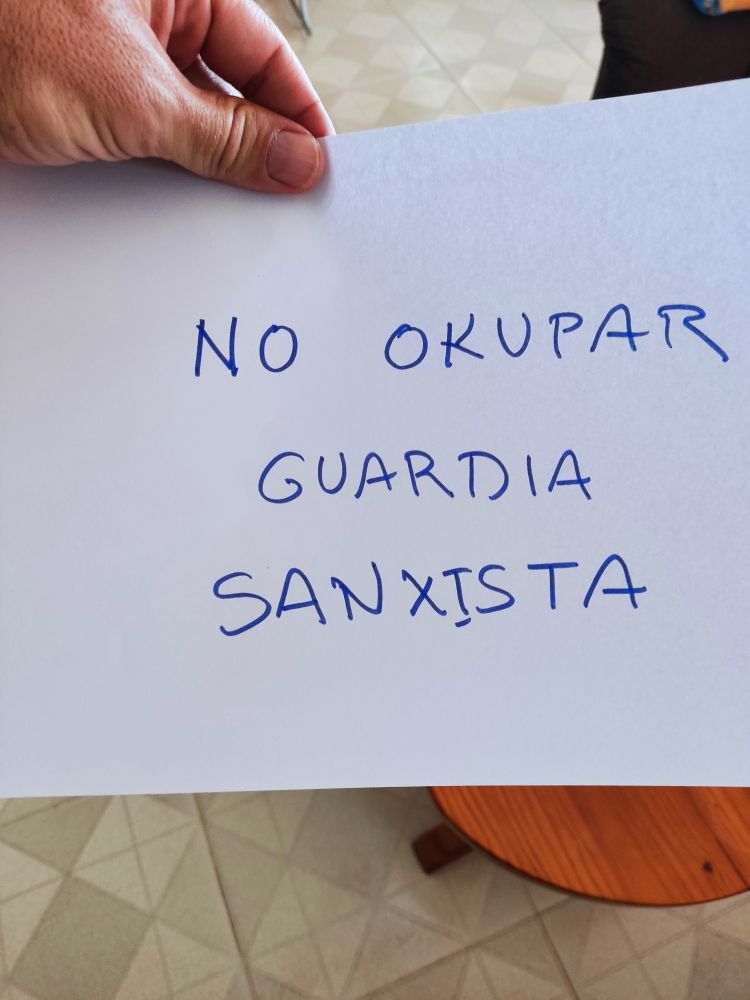 NO OKUPAR
GUARDIA
SANXISTA